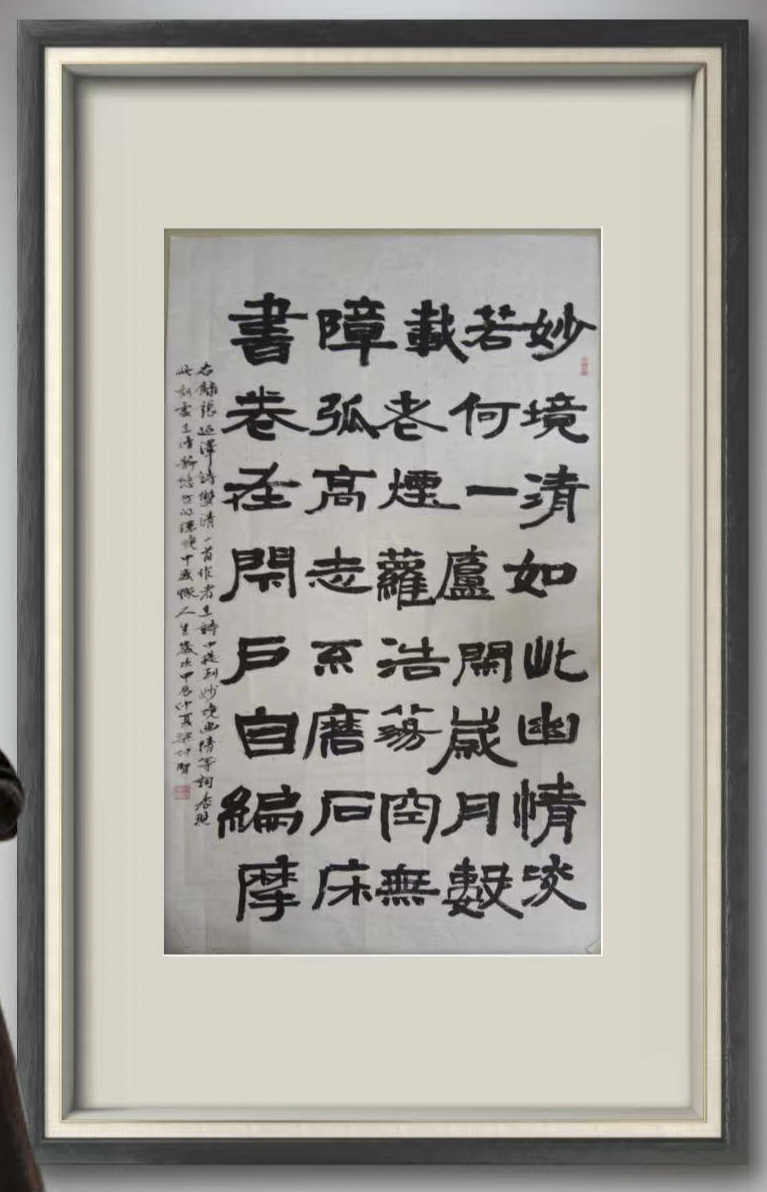 妙境清如此幽情淡
若何一廬閑歲月數
載老煙蘿浩蕩空無
障孤高志不磨石床
書卷在閉戶自編摩
右錄張詩雙清一首作者在詩中提到妙境幽情等詞表現
此刻處在清靜悠的環境中感慨人生歲次甲辰仲夏